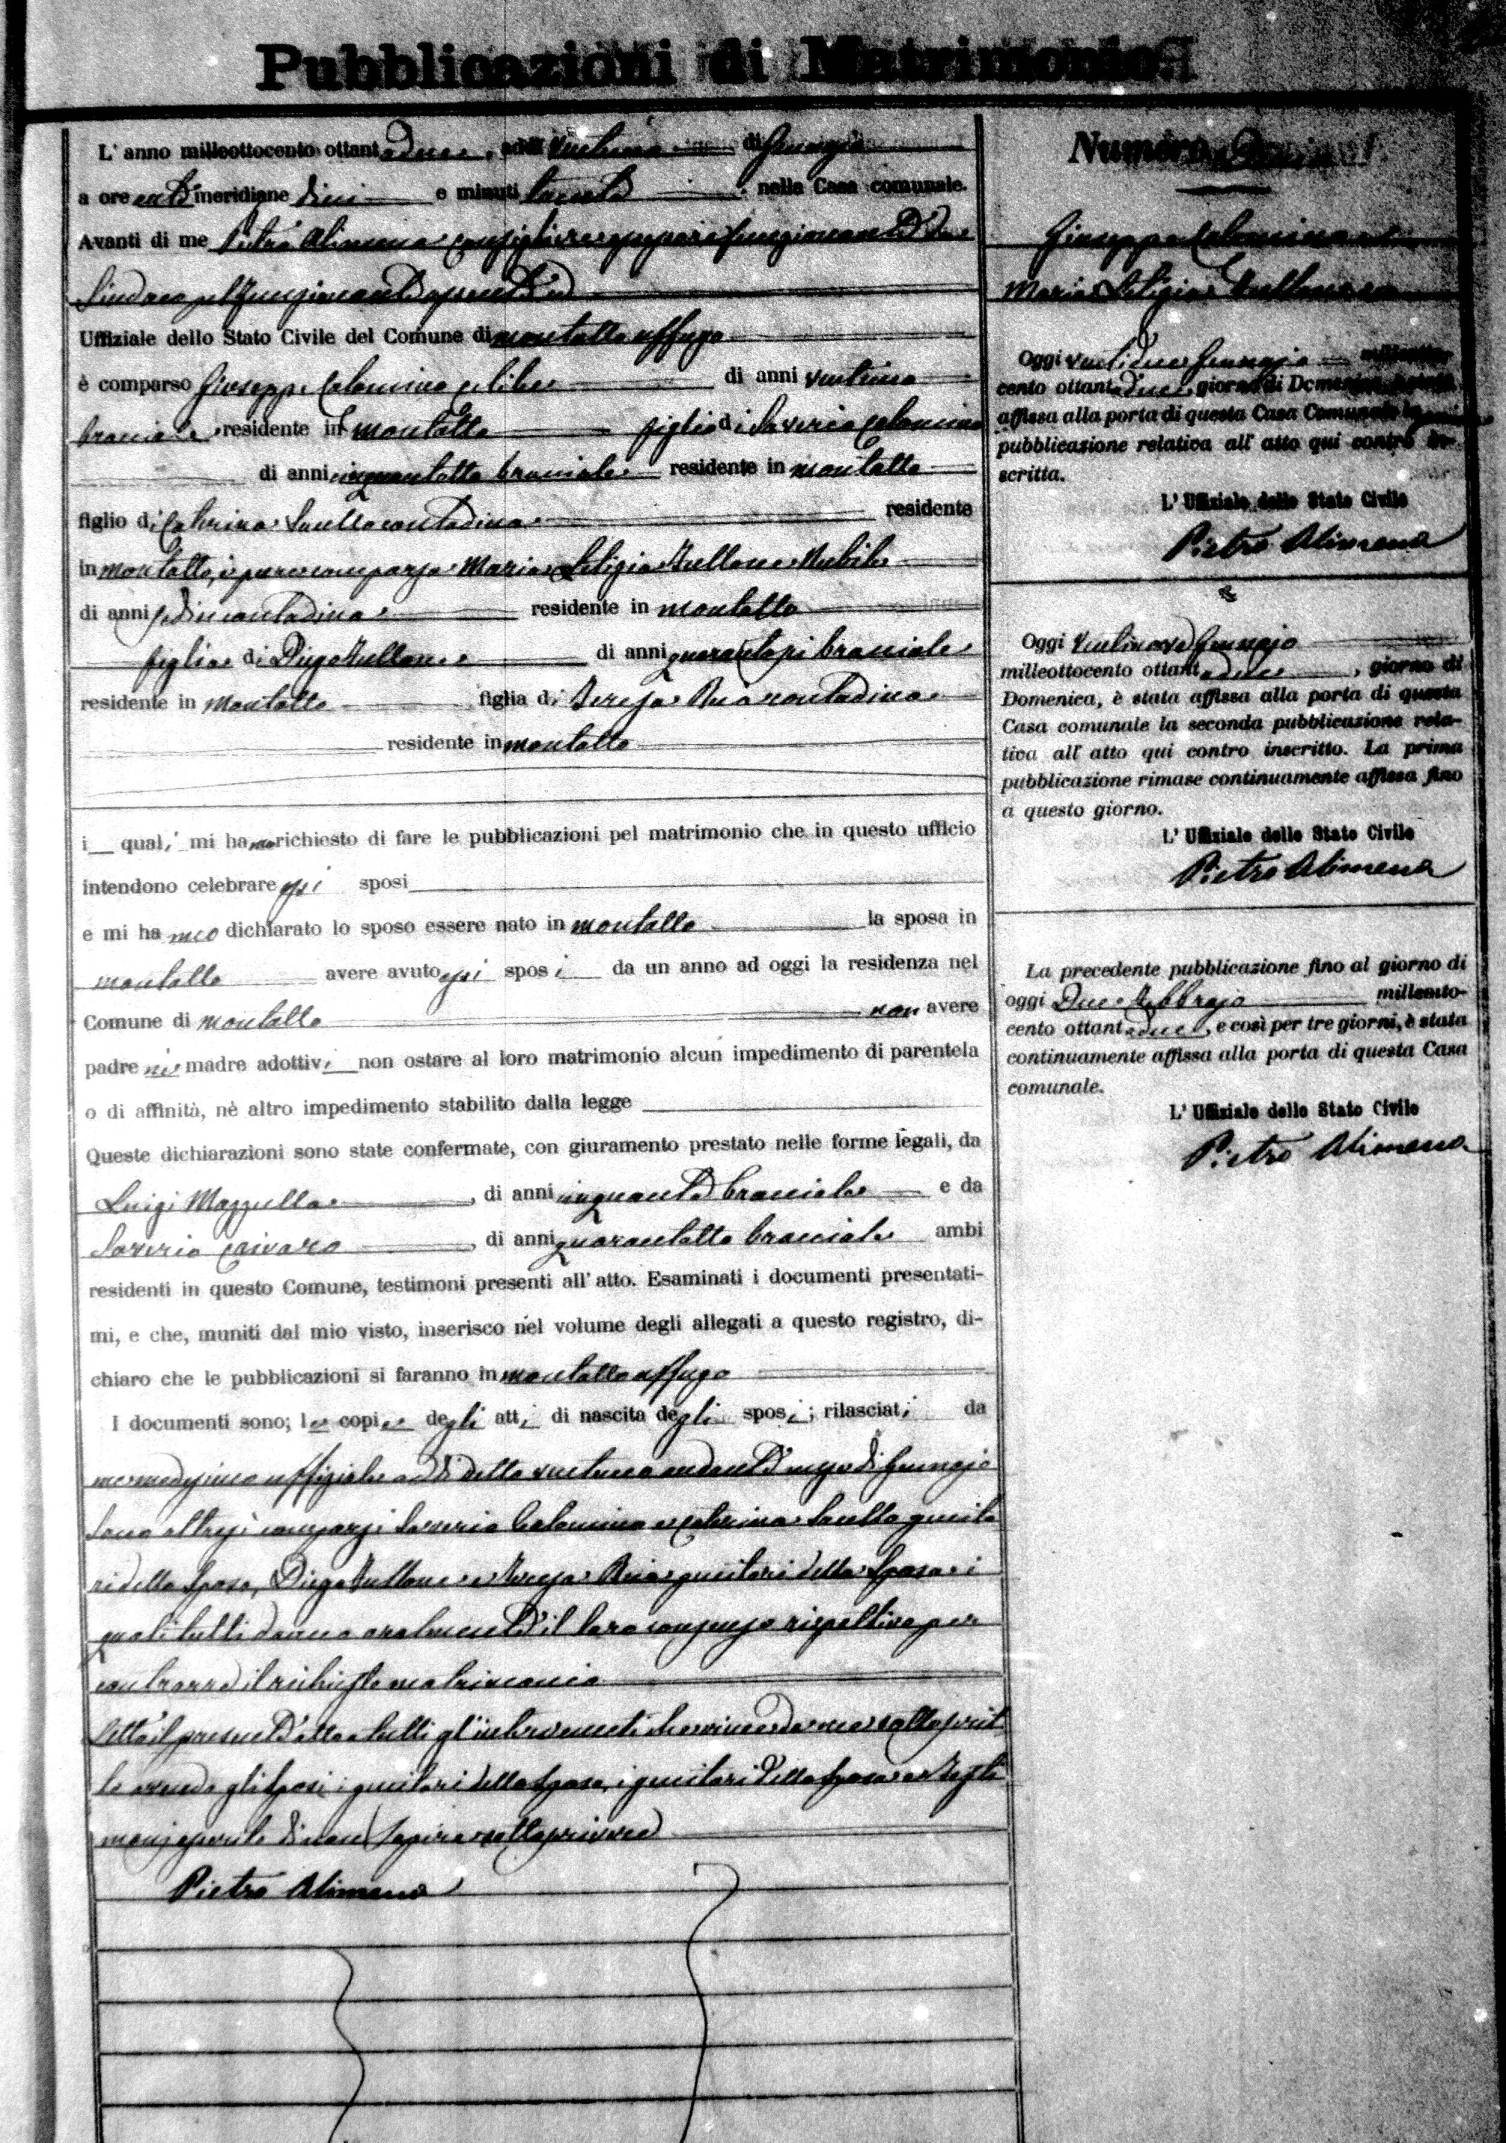 Pubblicazioni di Matrimonio
L' anno milleottocento ottantadue, addì ventuno di Gennajo
a ore anti meridiane dieci e minuti trenta nella Casa comunale.
Avanti di me Pietro Alimena Consigliere funzionante da
Sindaco pel funzionante assente
Uffiziale dello Stato Civile del Comune di Montalto Uffugo
è comparso Giuseppe Calomino celibe di anni ventuno
bracciale residente in Montalto figlio di Saverio Calomino
di anni cinquantotto bracciale residente in Montalto
figlio di Catrina Sacello contadina residente
in Montalto, è pure comparsa Maria Letizia Tullone Nubile
di anni sedici contadina residente in Montalto
figlia di Diego Tullone di anni quarantasei bracciale
residente in Montalto figlia di Teresa contadina
residente in Montalto
i quali mi hanno richiesto di fare le pubblicazioni pel matrimonio che in questo ufficio
intendono celebrare essi sposi
e mi hanno dichiarato lo sposo essere nato in Montalto la sposa in
Montalto avere avuto essi sposi da un anno ad oggi la residenza nel
Comune di Montalto non avere
padre nè madre adottivi non ostare al loro matrimonio alcun impedimento di parentela
o di affinità, nè altro impedimento stabilito dalla legge
Queste dichiarazioni sono state confermate, con giuramento prestato nelle forme legali, da
Luigi Mazzulla, di anni cinquanta bracciale e da
Saverio Caivaro, di anni quarantotto bracciale ambi
residenti in questo Comune, testimoni presenti all' atto. Esaminati i documenti presentati-
mi, e che, muniti dal mio visto, inserisco nel volume degli allegati a questo registro, di-
chiaro che le pubblicazioni si faranno in Montalto Uffugo
I documenti sono; le copie degli atti di nascita degli sposi; rilasciati da
me medesimo uffiziale a dì detto ventuno andante mese di Gennajo
Sono altresì comparsi Saverio Calomino e Catrina Sacello genito
ri dello sposo, Diego Tullone e Teresa genitori della sposa i
quali tutti danno oralmente il loro consenso rispettivo per
contrarre il richiesto matrimonio
Letto il presente atto a tutti gl'intervenuti che viene da me sottoscrit
to avendo gli sposi, i genitori dello sposo, i genitori della sposa e testi
moni asserito di non sapere sottoscrivere
Pietro Alimena
Numero
Giuseppe Calomino e
Maria Letizia Tullone
Oggi ventidue Gennajo milleotto-
cento ottantadue, giorno di Domenica
affissa alla porta di questa Casa Comunale la
pubblicazione relativa all' atto qui contro in-
scritta.
L' Uffiziale dello Stato Civile
Pietro Alimena
Oggi Ventinove Gennajo
milleottocento ottantadue, giorno di
Domenica, è stata affissa alla porta di questa
Casa comunale la seconda pubblicazione rela-
tiva all' atto qui contro inscritto. La prima
pubblicazione rimase continuamente affissa fino
a questo giorno.
L' Uffiziale dello Stato Civile
Pietro Alimena
La precedente pubblicazione fino al giorno di
oggi Due Febbrajo milleotto-
cento ottantadue, e così per tre giorni, è stata
continuamente affissa alla porta di questa Casa
comunale.
L' Uffiziale dello Stato Civile
Pietro Alimena